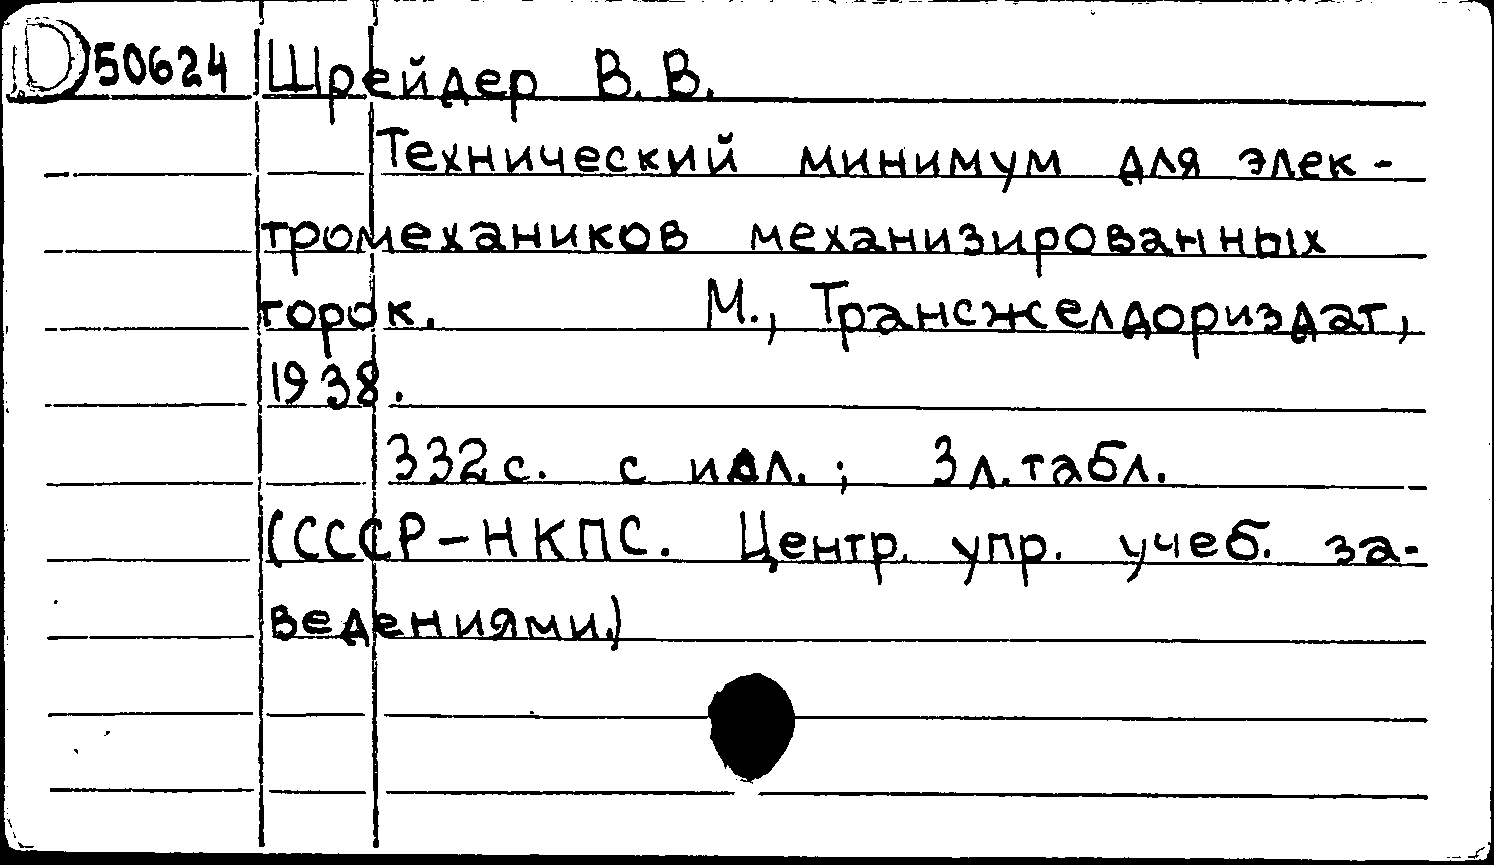 D 50624 Шрейдер В. В.
Технический минимум для элек-
тромехаников механизированных
горок. М., Трансжелдориздат,
1938.
332 с. с илл. ; 3 л. табл.
(СССР-НКПС. Центр. упр. учеб. за-
ведениями.)